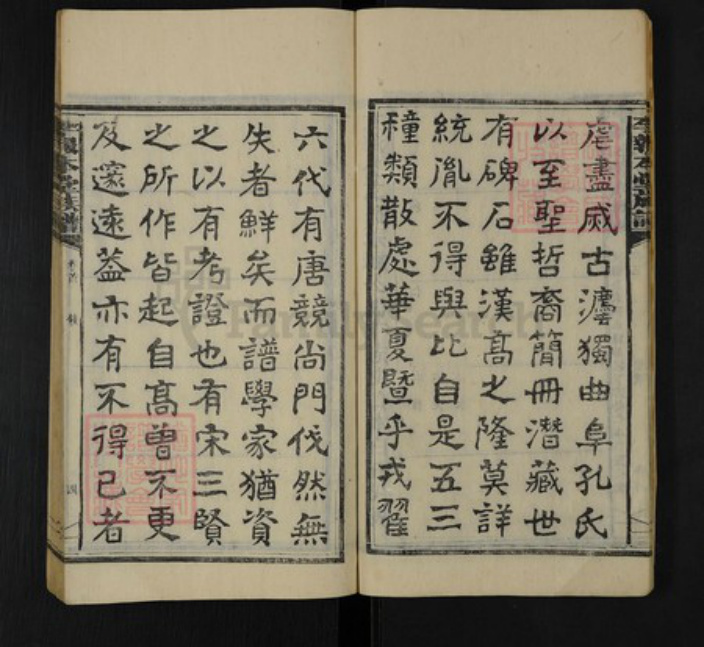 虐盡威古瀍獨曲阜孔氏
以至聖哲裔簡冊潛藏世
有碑石雖漢高之隆莫詳
統胤不得與比自是五三
種類散處華夏暨乎戎翟
六代有唐競尚門伐然無
失者鮮矣而譜學家猶資
之以有考證也有宋三賢
之所作皆起自高曾不更
及邃遠蓋亦有不得已者
李報本堂族譜
卷首
四
FamilySearch